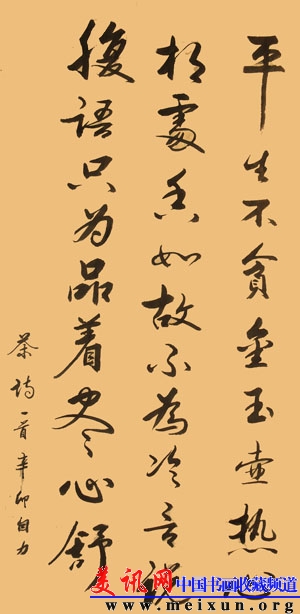 平生不貪金玉壺热心
相處香如故不為冷言说
腹語只为品着尽心舒
茶詩一首辛卯自力
美讯网 中国书画收藏频道
www.meixun.org